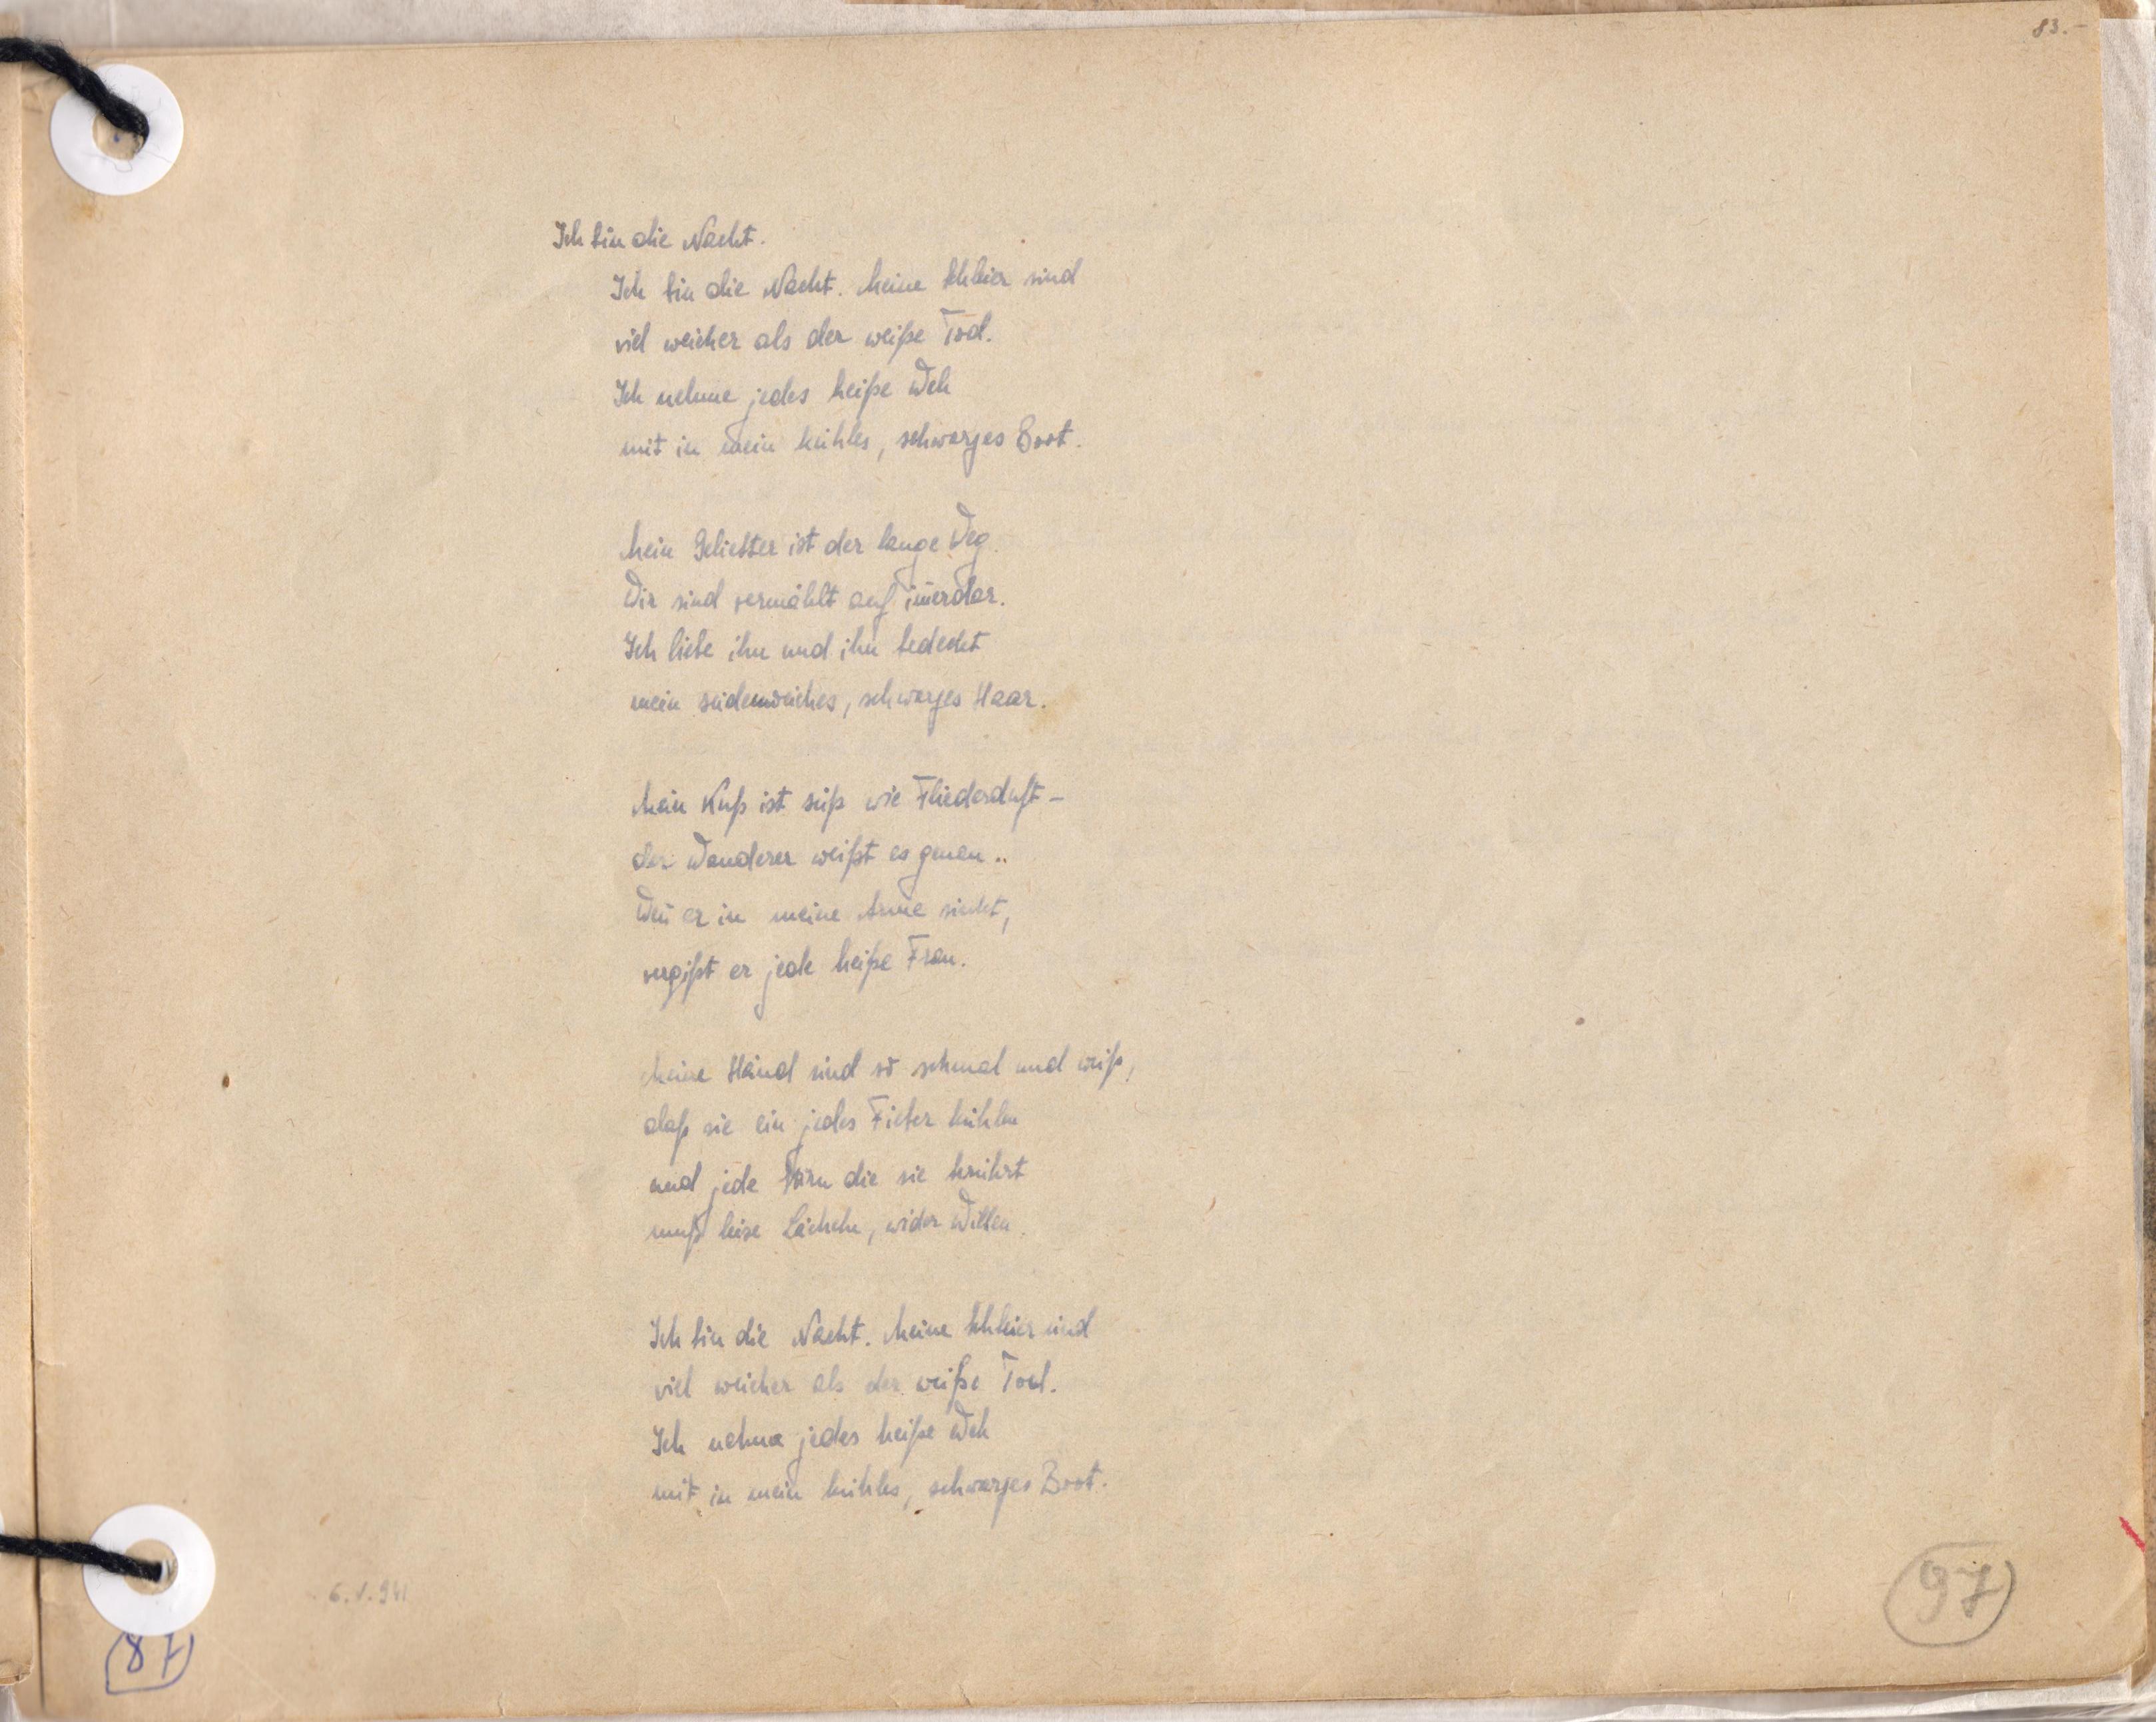 83.-
Ich bin die Nacht.
Ich bin die Nacht. Meine Schleier sind
viel weicher als der weiße Tod.
Ich nehme jedes heiße Weh
mit in mein kühles, schwarzes Boot.
Mein Geliebter ist der lange Weg.
Wir sind vermählt auf im̄erdar.
Ich liebe ihn und ihn bedeckt
mein seidenweiches, schwarzes Haar.
Mein Kuß ist süß wie Fliederduft –
der Wanderer weißt es genau ..
Wen̄ er in meine Arme sinkt,
vergißt er jede heiße Frau.
Meine Händ sind so schmal und weiß,
daß sie ein jedes Fieber kühlen
und jede Stirn die sie berührt
muß leise Lächeln, wider Willen.
Ich bin die Nacht. Meine Schleier sind
viel weicher als der weiße Tod.
Ich nehme jedes heiße Weh
mit in mein kühles, schwarzes Boot.
6.V.941
87
97